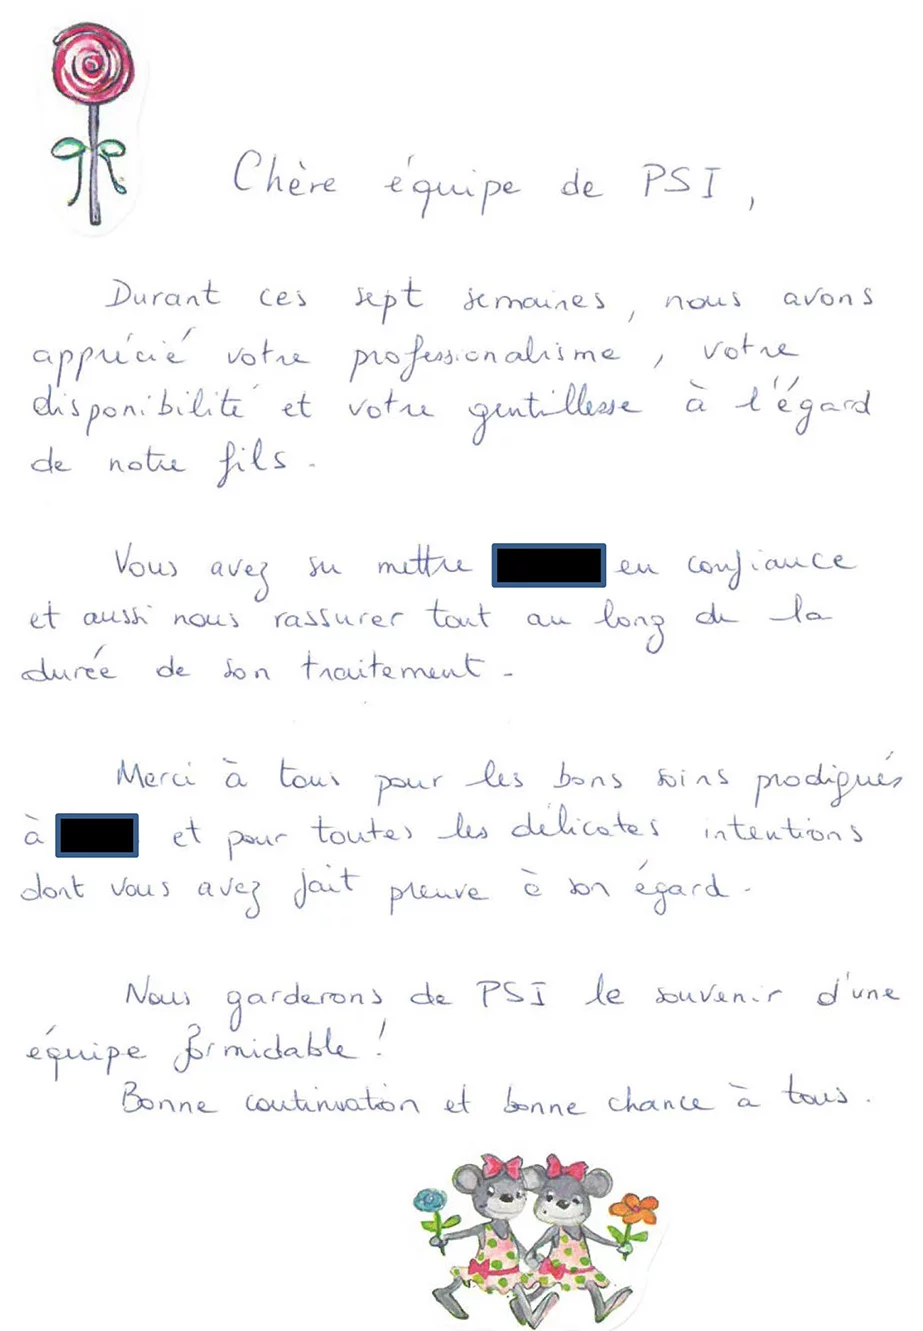 Chère équipe de PSI,
Durant ces sept semaines, nous avons
apprécié votre professionalisme, votre
disponibilité et votre gentillesse à l'égard
de notre fils.
Vous avez su mettre en confiance
et aussi nous rassurer tout au long de la
durée de son traitement.
Merci à tous pour les bons soins prodigués
à et pour toutes les délicates intentions
dont vous avez fait preuve à son égard.
Nous garderons de PSI le souvenir d'une
équipe formidable !
Bonne continuation et bonne chance à tous.